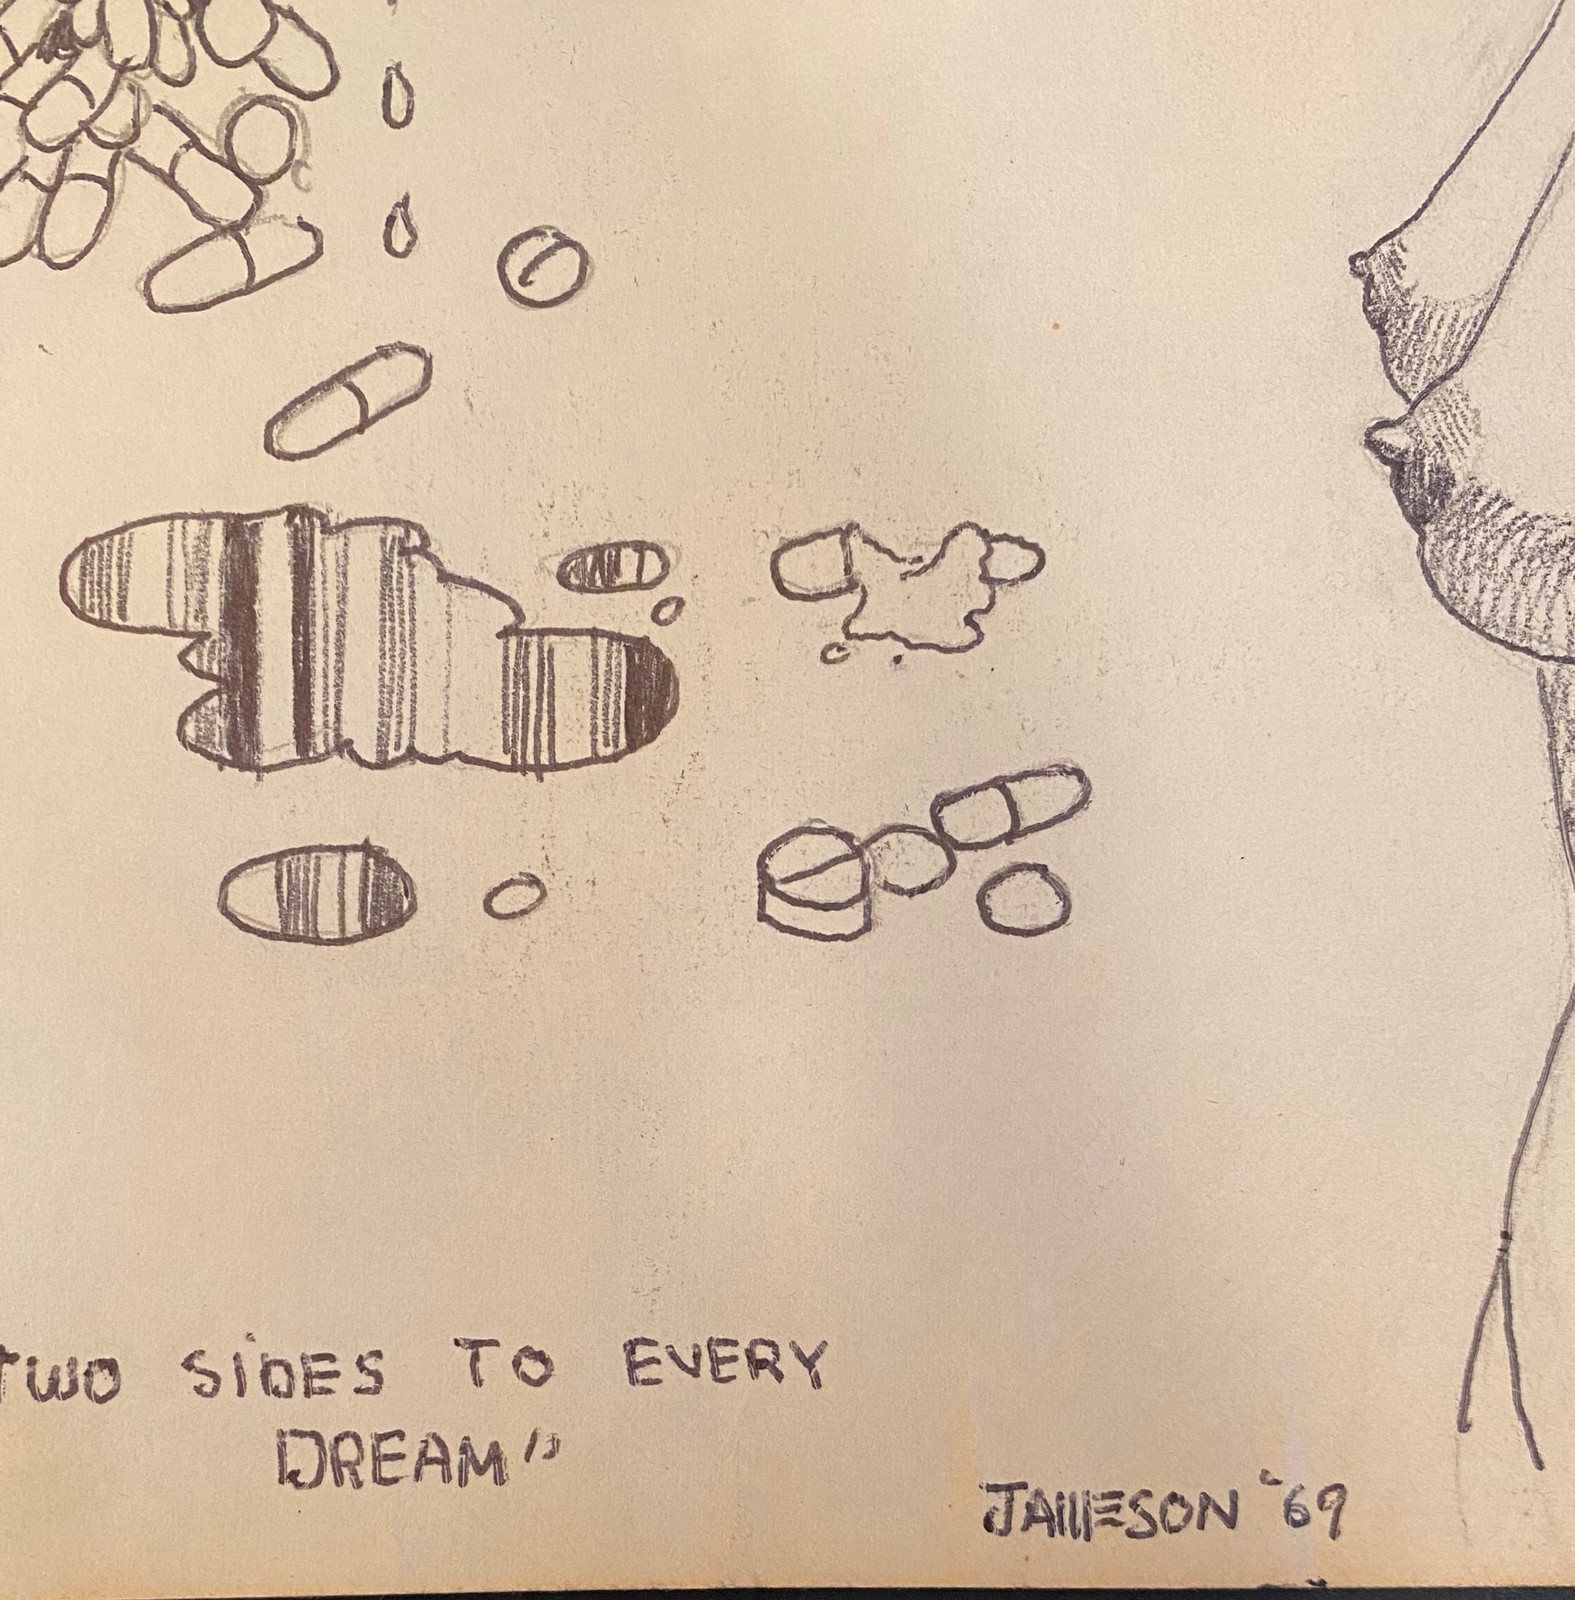 TWO SIDES TO EVERY
DREAM"
JAMIESON '69